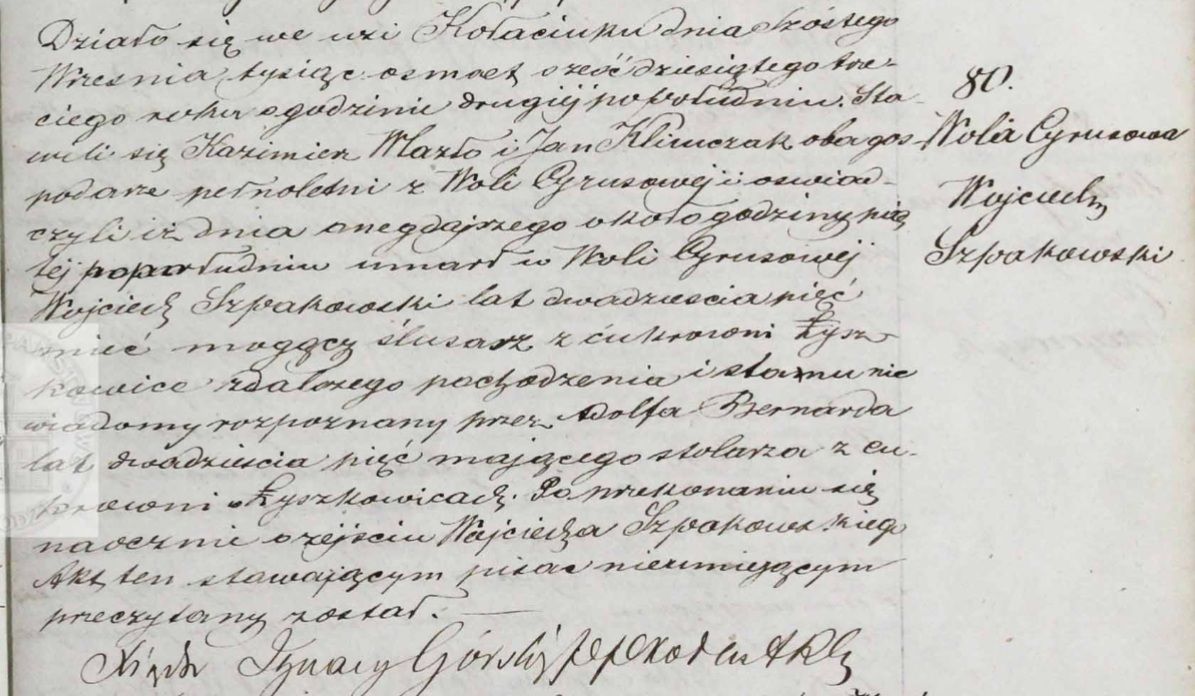 Działo się we wsi Kołaciuku dnia Szóstego
Wresnia tysiąc osmset sześćdziesiątego trze-
ciego roku o godzinie drugiej popołudniu. Sta-
wili się Kazimierz Mazło i Jan Klimczak oba gos-
podarze pełnoletni z Woli Cyrusowej i oswiad-
czyli iż dnia onegdajszego około godziny pią
tej popołudniu umarł w Woli Cyrusowej
Wojciech Szpakowski lat dwadziescia pięć
mieć mogący ślusarz z cukrowni Łysz-
kowice zdalszego pochodzenia i stanu nie
wiadomy rozpoznany przez Adolfa Bernarda
lat dwadzieścia pięć mającego stolarza z cu-
krowni Łyszkowicach. Po przekonaniu się
naocznie o zejściu Wojciecha Szpakowskiego
Akt ten stawającym pisac nieumiejącym
przeczytany został.
Ksiądz Ignacy Górski
80.
Wola Cyrusowa
Wojciech
Szpakowski